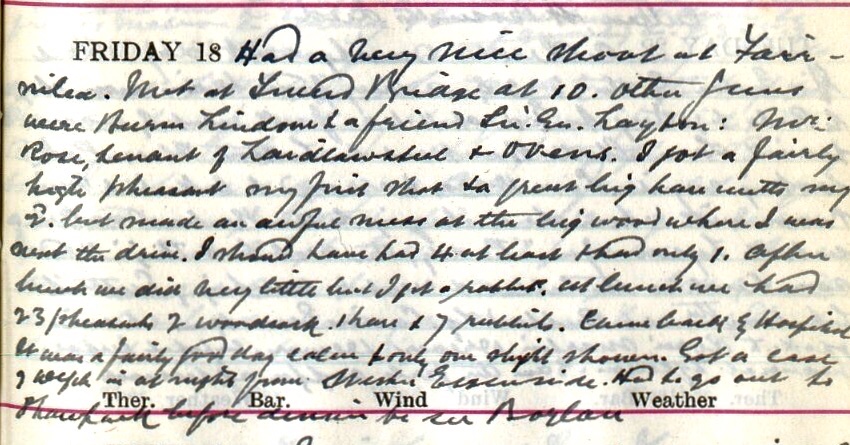 FRIDAY 18 Had a very nice shoot at Fair-
nilee. Met at Tweed Bridge at 10. Other guns
were Burn Lindom & a friend Lt. Layton: Mr.
Rose, tenant of Laidlawstiel & Ovens. I got a fairly
high pheasant my first shot & a great big hare with my
2. but made an awful mess at the big wood where I was
next the drive. I should have had 4 at least & had only 1. After
lunch we did very little but I got a rabbit. At lunch we had
23 pheasants 2 woodcock. 1 hare & 7 rabbits. Came back & Hospital
It was a fairly good day calm & only one slight shower. Got a case
in at night from Had to go out to
Ther. Bar. Wind Weather
before dinner to see Boylan